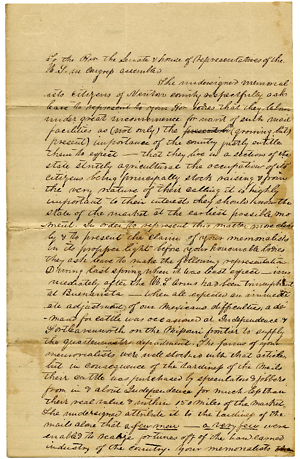 To the Hon the Senate & house of Representatives of the
U.S. in Congress assembled
The undersigned memorial
ists citizens of Newton county respectfully ask
leave to represent to your Hon bodies that they labor
under great inconvenience for want of such mail
facilities as (not only) the present (growing, but)
present) importance of the country justly entitle
them to expect — that they live in a section of the
state strictly agricultural the occupation of its
citizens being principally stock raising & from
the very nature of their calling it is highly
important to their interests they should know the
state of the market at the earliest possible mo
ment. In order to represent this matter more clear
ly & to present the claims of your memorialists
in its proper light before your honourable bodies
they ask leave to make the following representation
During last spring when it was least expected — im
mediately after the U.S. Arms had been triumphant
at Buenavista — when all expected an immedi
ate adjustment of our Mexican difficulties, a de
mand for cattle was occasioned at Independence &
Fort Leavenworth on the Missouri frontier to supply
the quartermasters department. The farms of your
memorialists were well stocked with that article
but in consequence of the tardiness of the Mails
their cattle was purchased by speculators & jobbers
from in & about Independence for much less than
their real value & within 150 miles of the market.
The undersigned attribute it to the tardiness of the
mails alone that a few men — a very few were
enabled to realize fortunes off of the hard earned
industry of the country. Your memorialists